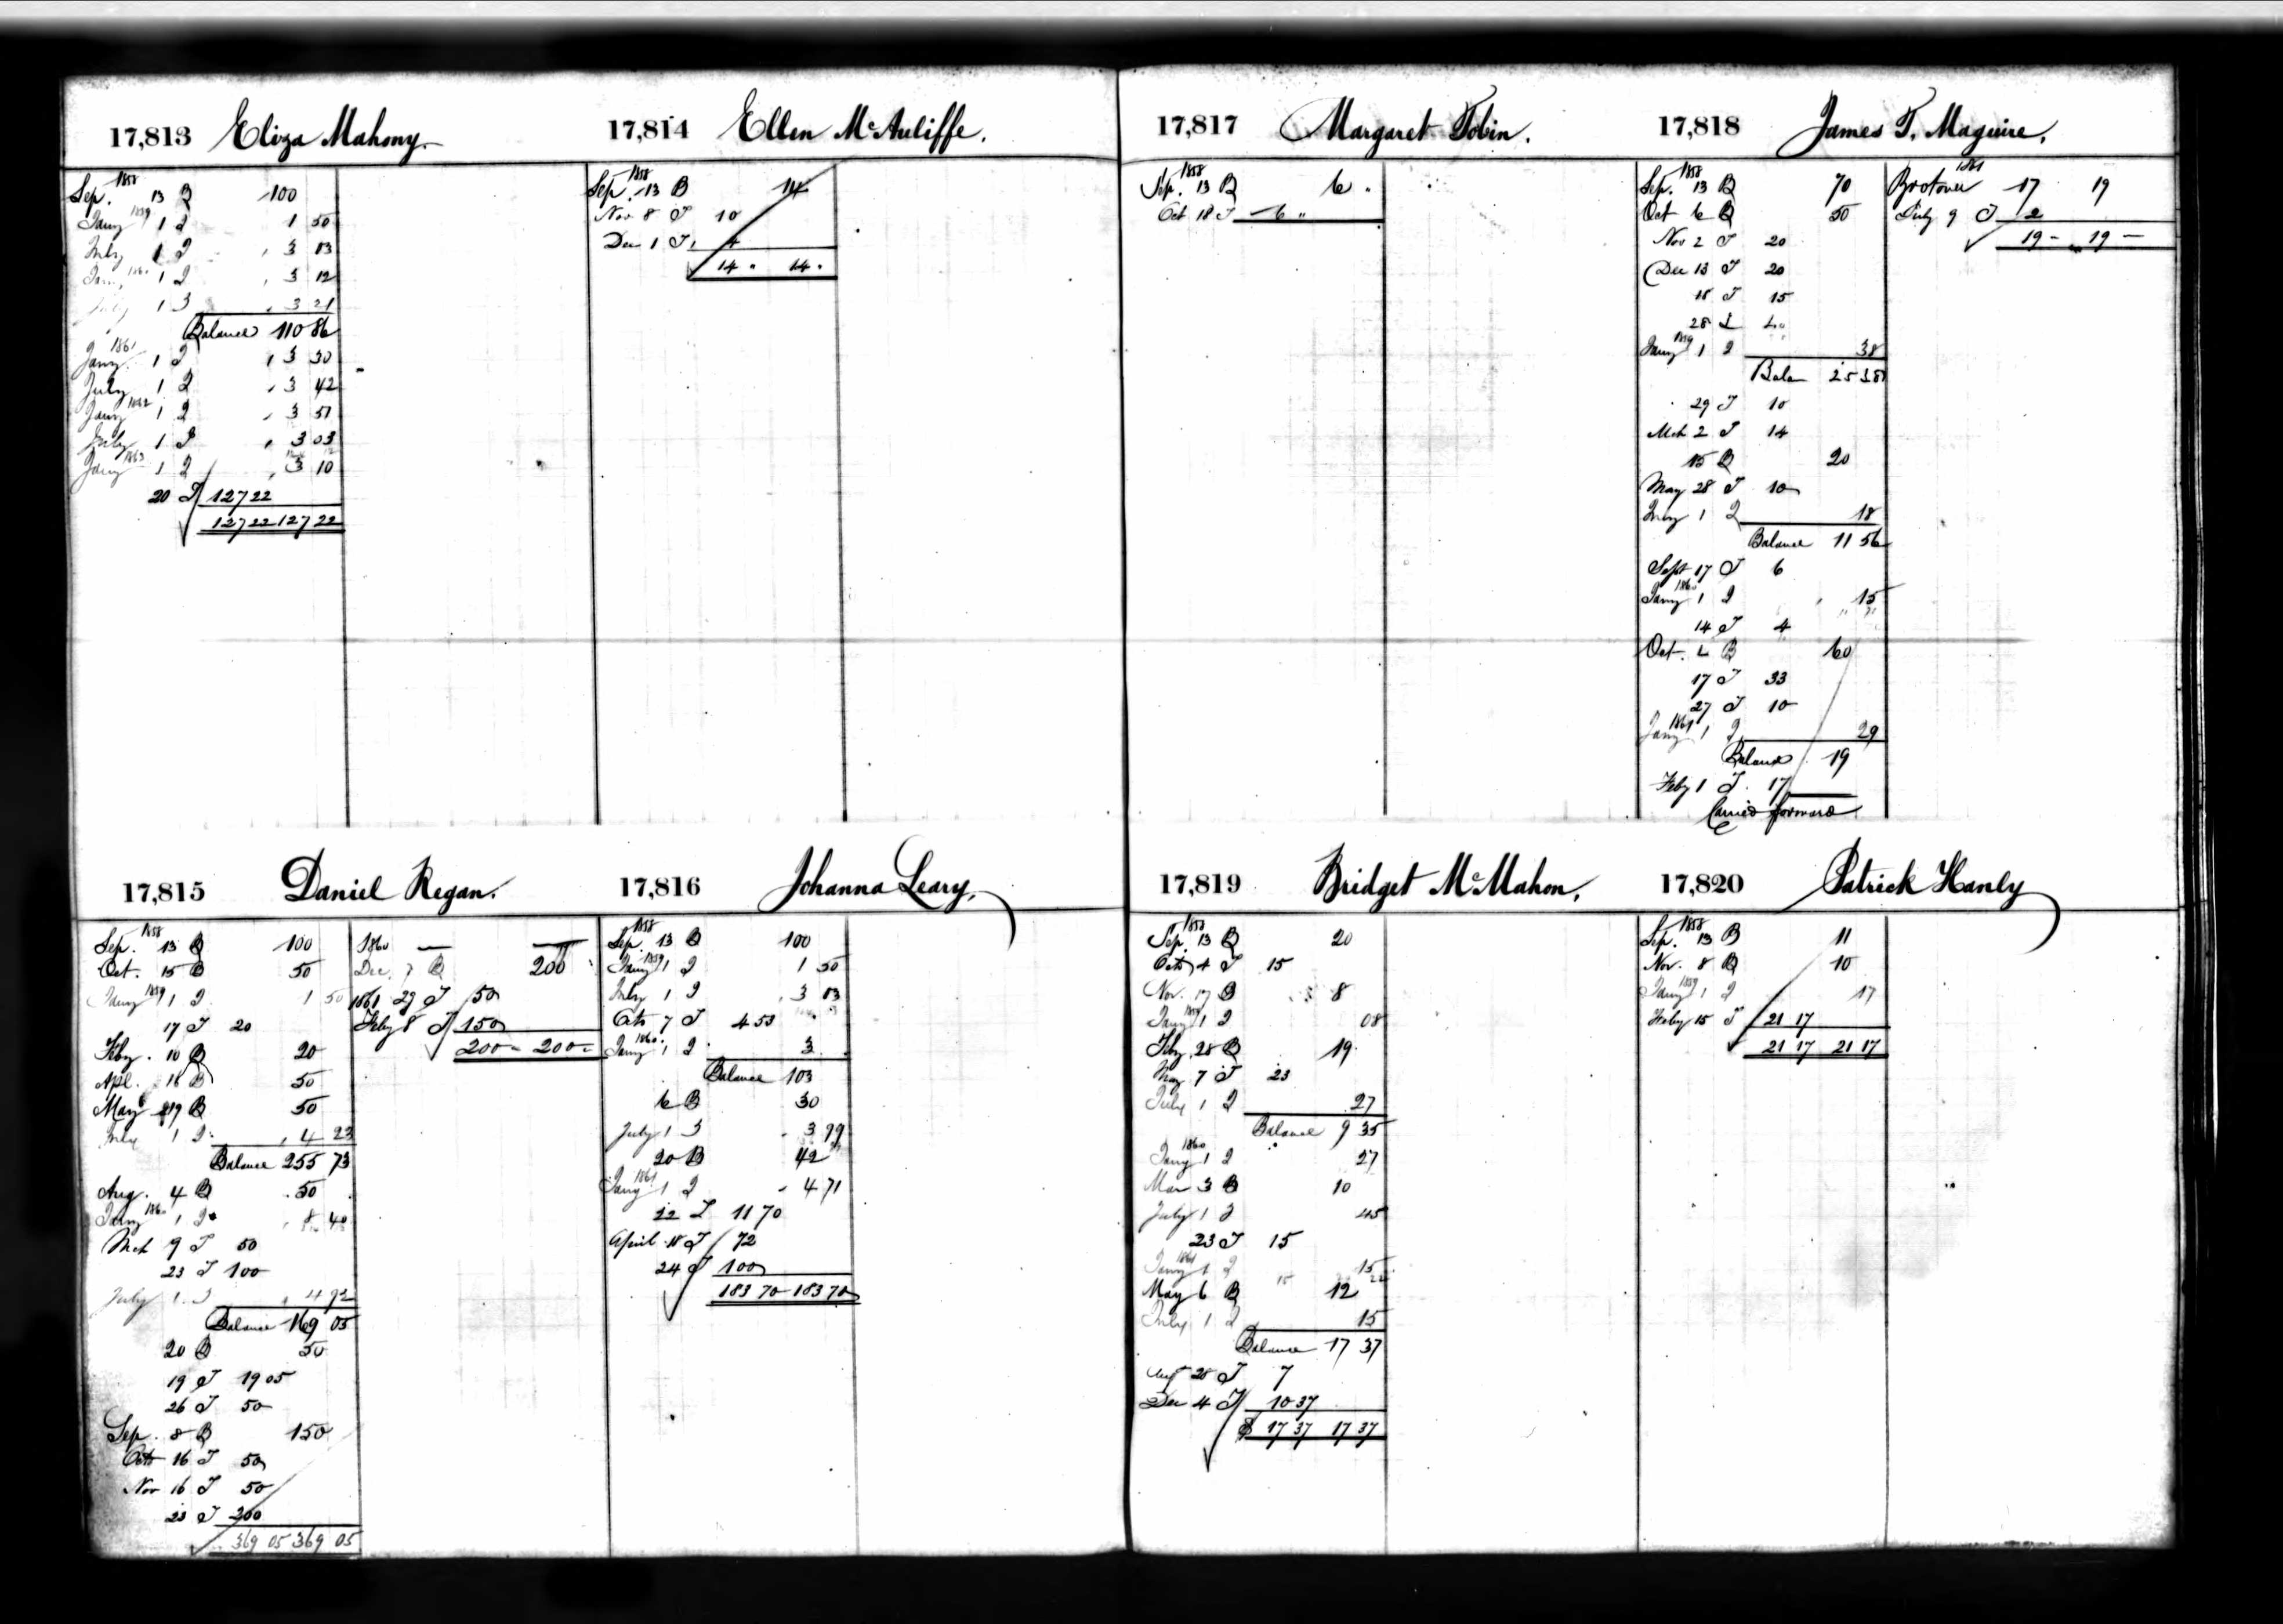 17,813 Eliza Mahony.
1858
Sep. 13 B 100
Jany 1859 1 I 1 50
July 1 I 3 03
Jany 1860 1 I 3 12
July 1 I 3 21
Balance 110 86
Jany 1861 1 I 3 30
July 1 I 3 42
Jany 1862 1 I 3 51
July 1 I 3 03
Jany 1863 1 I 3 10
20 T 127 22
127 22 127 22
17,814 Ellen McAuliffe.
1858
Sep. 13 B 14
Nov 8 T 10
Dec 1 T 4
14 " 14 "
17,815 Daniel Regan.
1858
Sep. 13 B 100
Oct. 15 B 50
Jany 1859 1 I 1 50
17 T 20
Feby. 10 B 20
Apl. 16 B 50
May 19 B 50
July 1 I 4 23
Balance 255 73
Aug. 4 B 50
Jany 1860 1 I 8 40
Mch 9 T 50
23 T 100
July 1 I 4 92
Balance 169 05
20 B 50
19 T 19 05
26 T 50
Sep. 8 B 150
Octo 16 T 50
Nov 16 T 50
23 T 200
369 05 369 05
1860
Dec. 7 B 200
1861 29 T 50
Feby 8 T 150
200 - 200 -
17,816 Johanna Leary.
1858
Sep. 13 B 100
Jany 1859 1 I 1 50
July 1 I 3 03
Octo 7 T 4 53
Jany 1860 1 I 3
Balance 103
6 B 30
July 1 I 3 99
20 B 42
Jany 1861 1 I 4 71
22 T 11 70
April 18 T 72
24 T 100
183 70 183 70
17,817 Margaret Tobin.
1858
Sep. 13 B 6 "
Oct 18 T 6 "
17,818 James T. Maguire.
1858
Sep. 13 B 70
Oct 6 B 50
Nov 2 T 20
Dec 13 T 20
18 T 15
28 T 40
Jany 1859 1 I 38
Bala 25 38
29 T 10
Mch 2 T 14
15 B 20
May 28 T 10
July 1 I 18
Balance 11 56
Sept 17 T 6
Jany 1860 1 I 15
14 T 4
Oct. 2 B 60
17 T 33
27 T 10
Jany 1861 1 I 29
Balance 19
Feby 1 T 17
Carried forward
1861
Brot over 17 19
July 9 T 2
19 - 19 -
17,819 Bridget McMahon.
1858
Sep. 13 B 20
Octo 4 T 15
Nov. 17 B 8
Jany 1859 1 I 08
Feby 28 B 19
May 7 T 23
July 1 I 27
Balance 9 35
Jany 1860 1 I 27
Mar 3 B 10
July 1 I 45
23 T 15
Jany 1861 1 I 15
May 6 B 12
July 1 I 15
Balance 17 37
Aug 28 T 7
Dec 4 T 10 37
$ 17 37 17 37
17,820 Patrick Hanly
1858
Sep. 13 B 11
Nov. 8 B 10
Jany 1859 1 I 17
Feby 15 T 21 17
21 17 21 17